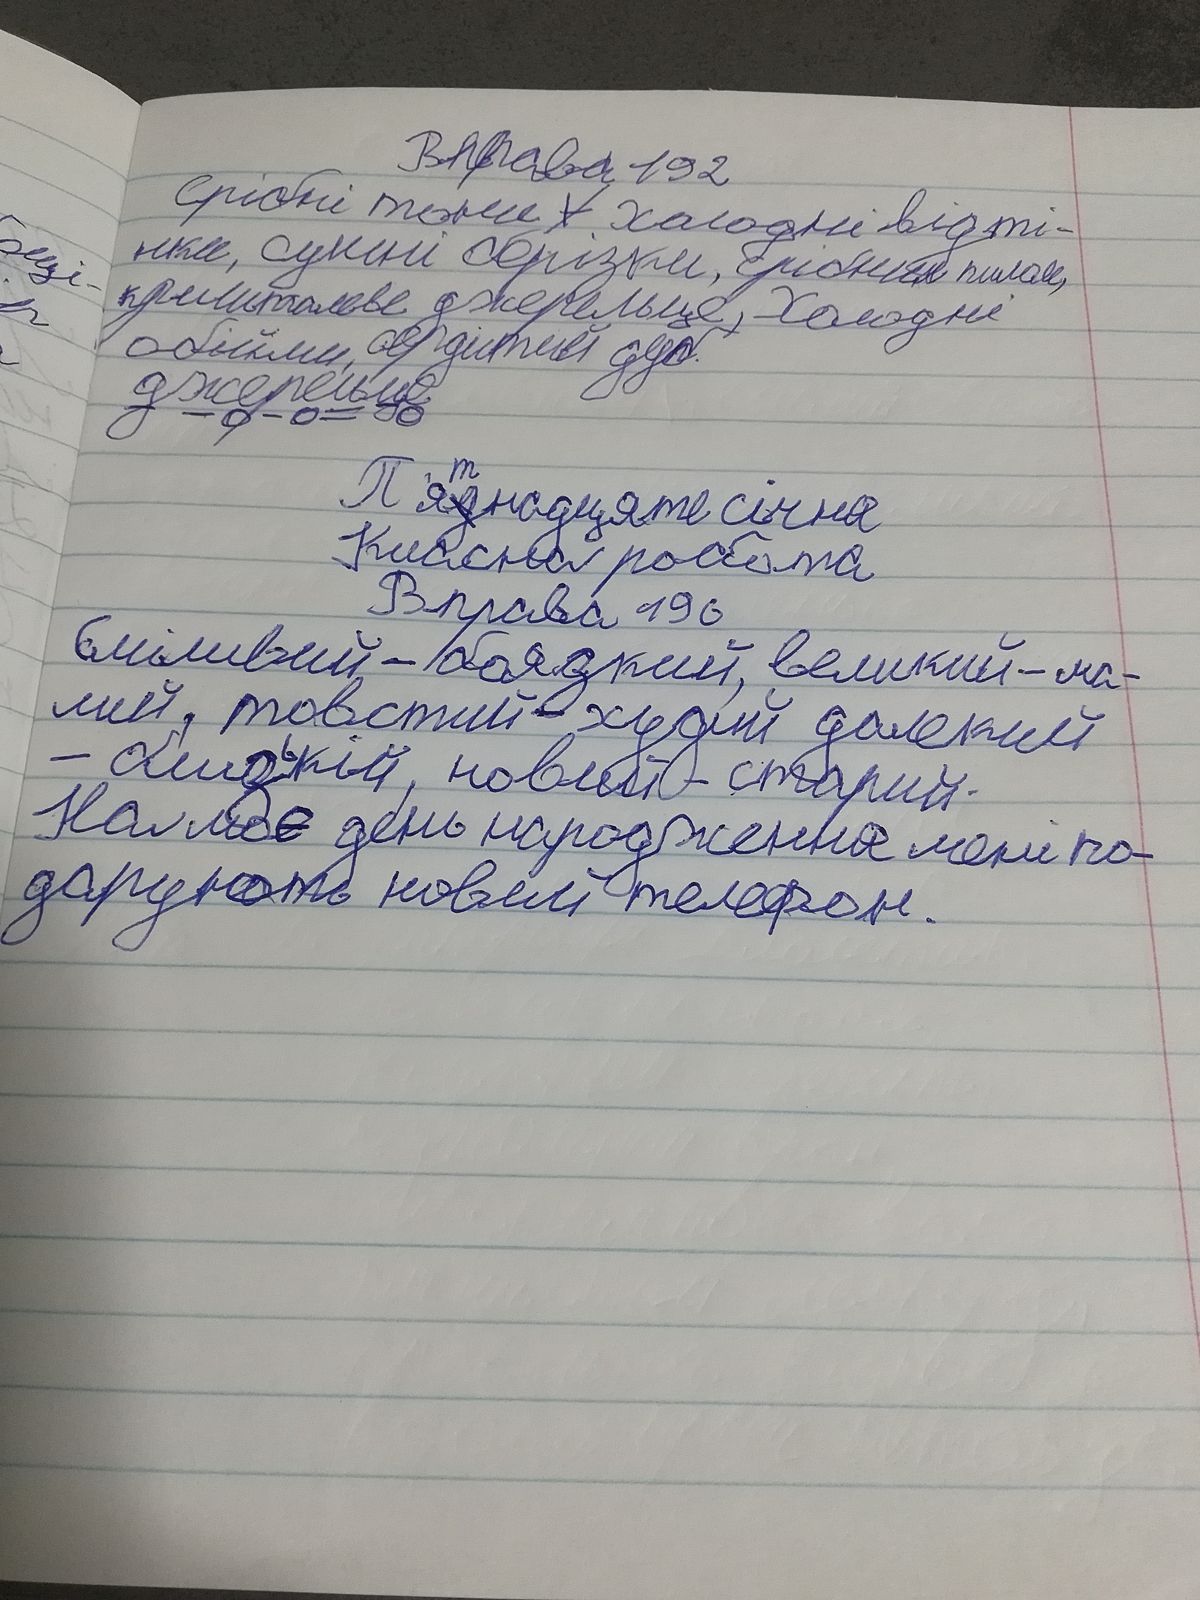 Вправа 192
срібні тони, холодні відті-
нки, сумні обрізки, срібний пилок,
кришталеве джерельце, холодні
обійми, сердитий дуб.
джерельце
П'ятнадцяте січня
Класна робота
Вправа 196
Сміливий - боязкий, великий - ма-
лий, товстий - худий далекий
- близькій, новий - старий.
На моє день народження мені по-
дарують новий телефон.